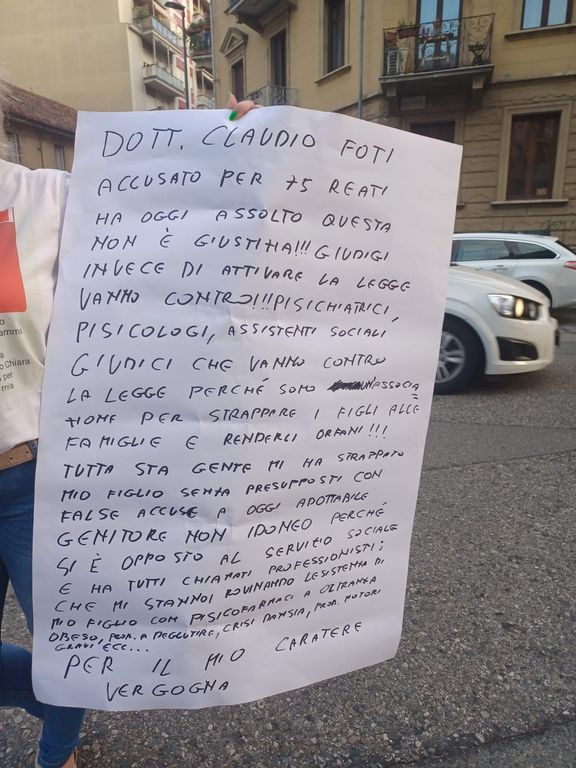 DOTT. CLAUDIO FOTI
ACCUSATO PER 75 REATI
HA OGGI ASSOLTO QUESTA
NON È GIUSTITIA!!! GIUDIGI
INVECE DI ATTIVARE LA LEGGE
VANNO CONTRO!!! PISICHIATRICI,
PISICOLOGI, ASSISTENTI SOCIALI
GIUDICI CHE VANNO CONTRO
LA LEGGE PERCHÉ SONO UN'ASSOCIA
TIONE PER STRAPPARE I FIGLI ALLE
FAMIGLIE E RENDERLI ORFANI!!!
TUTTA STA GENTE MI HA STRAPPATO
MIO FIGLIO SENTA PRESUPPOSTI CON
FALSE ACCUSE A OGGI ADOTTABILE
GENITORE NON IDONEO PERCHÉ
SI È OPPOSTO AL SERVITIO SOCIALE
E HA TUTTI CHIAMATI PROFESSIONISTI;
CHE MI STANNO ROVINANDO LESISTENTA DI
MIO FIGLIO CON PISICOFARMACI A OLTRANTA
OBESO, PROB. A DEGLUTIRE, CRISI DANSIA, PROB. MOTORI
GRAVI ECC...
PER IL MIO CARATERE
VERGOGNA
ammi
a
o Chiara
per
mia